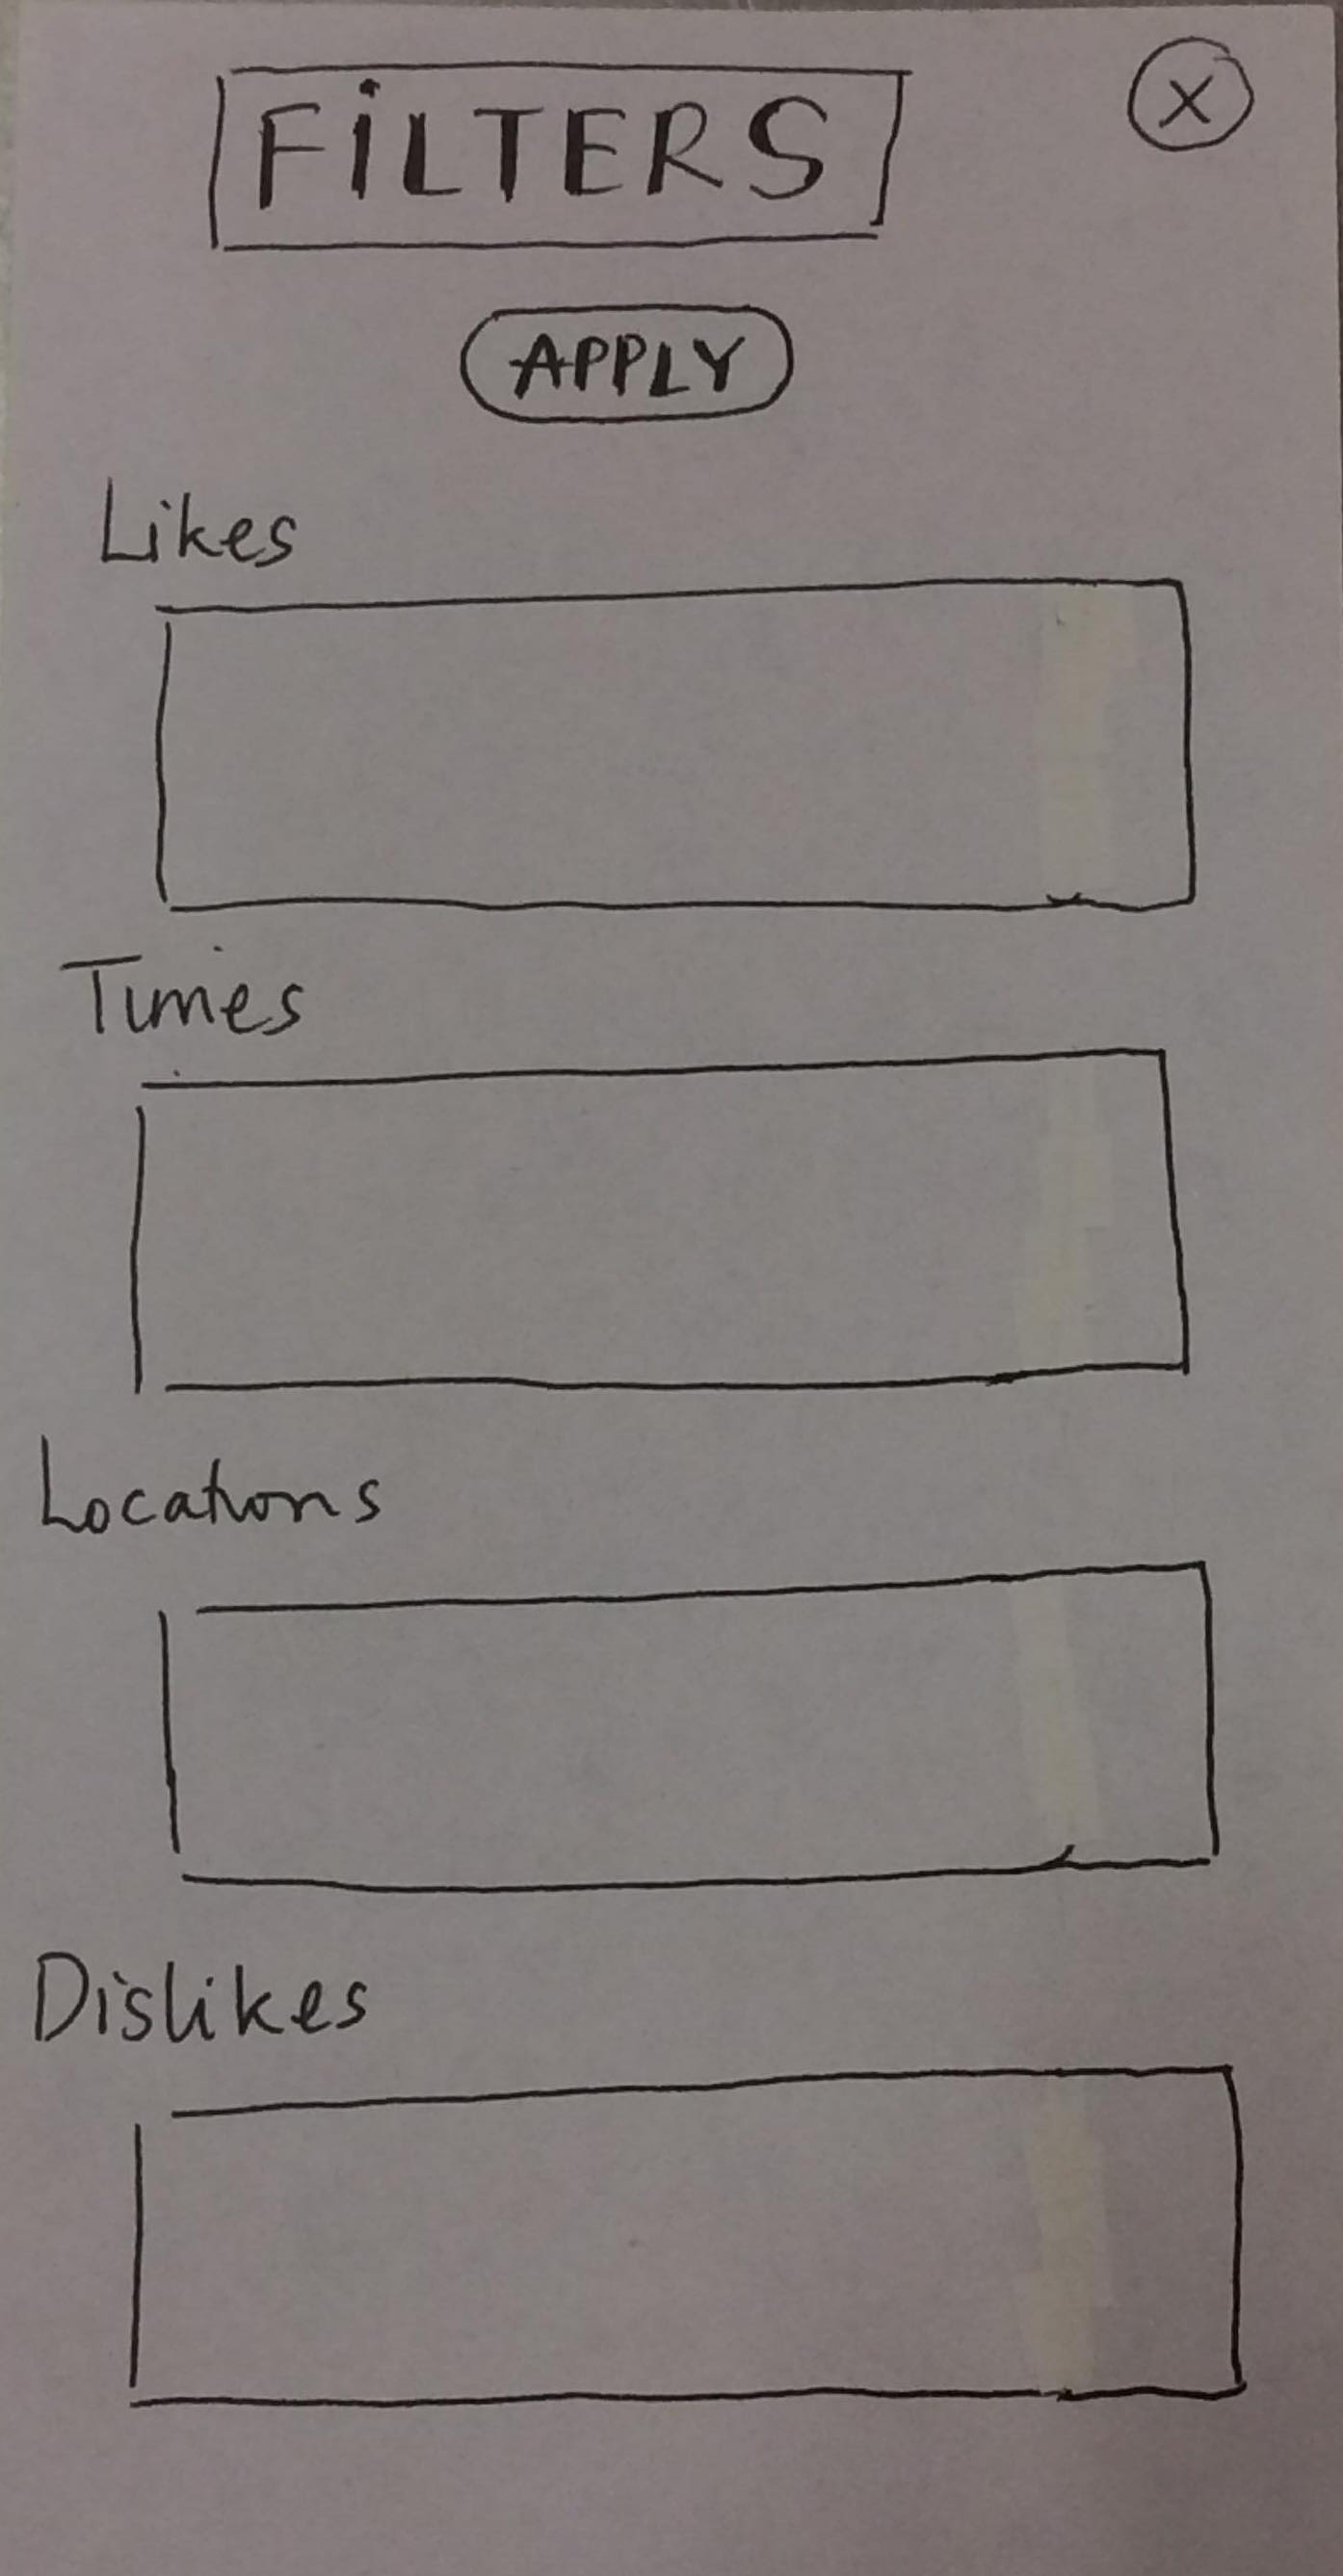 FiLTERS
X
APPLY
Likes
Times
Locations
Dislikes